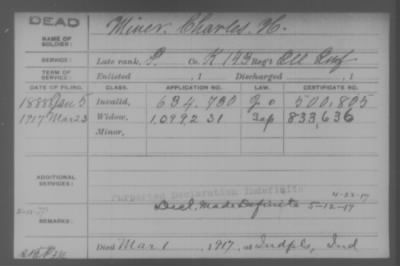 DEAD
Miner, Charles H.
NAME OF
SOLDIER:
SERVICE: Late rank, P. Co. K 143 Reg't Ill Inf
TERM OF
SERVICE: Enlisted , 1 Discharged , 1
DATE OF FILING. CLASS. APPLICATION NO. LAW. CERTIFICATE NO.
1888 Jan 5 Invalid, 634.730 500,805
1917 Mar 23 Widow, 1,099,231 833,636
Minor,
ADDITIONAL
SERVICES:
Declaration Indefinite 4-23-17
REMARKS: Decl. Made Definite 5-12-17
Died Mar 1, 1917, at Indpls, Ind